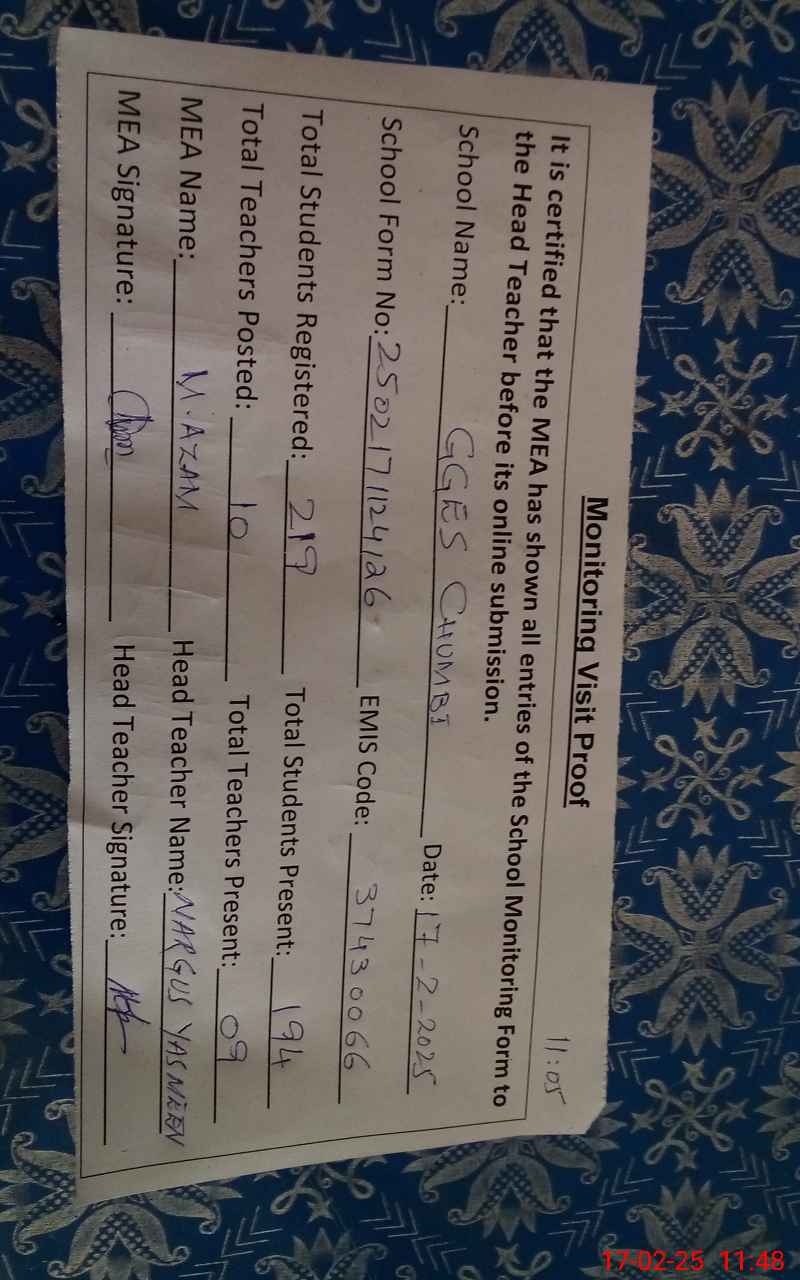 Monitoring Visit Proof
11:05
It is certified that the MEA has shown all entries of the School Monitoring Form to
the Head Teacher before its online submission.
School Name: GGES CHUMBI Date: 17-2-2025
School Form No: 2502171124126 EMIS Code: 37430066
Total Students Registered: 219 Total Students Present: 194
Total Teachers Posted: 10 Total Teachers Present: 09
MEA Name: M.AZAM Head Teacher Name: NARGUS YASMEEN
MEA Signature: Head Teacher Signature:
17-02-25 11:48